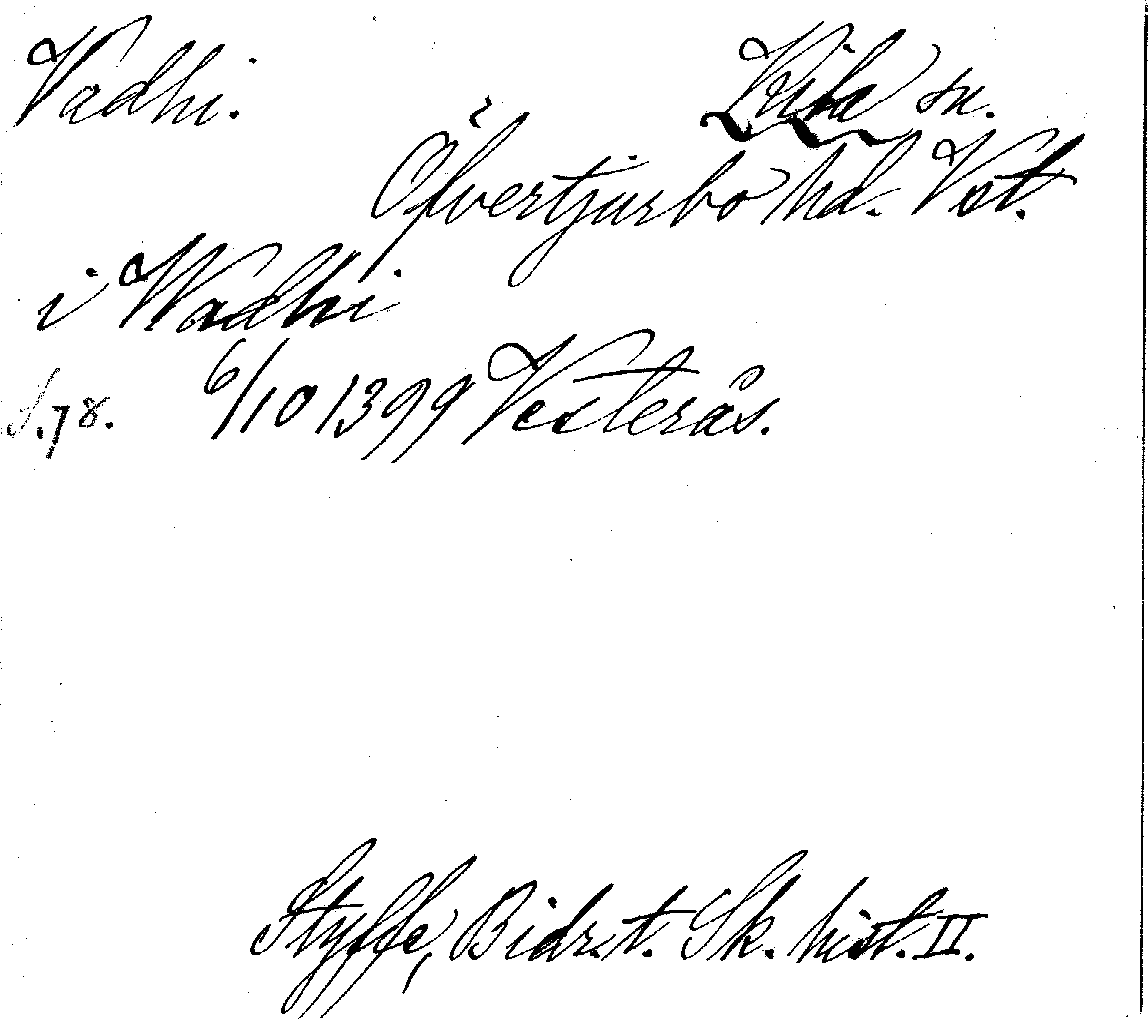 Vadhi. Kila sn.
Öfvertjurbo hd. Vst.
i Wadhi
S.78. 6/10 1399 Vesterås.
Styffe, Bidr. t. Sk. hist. II.